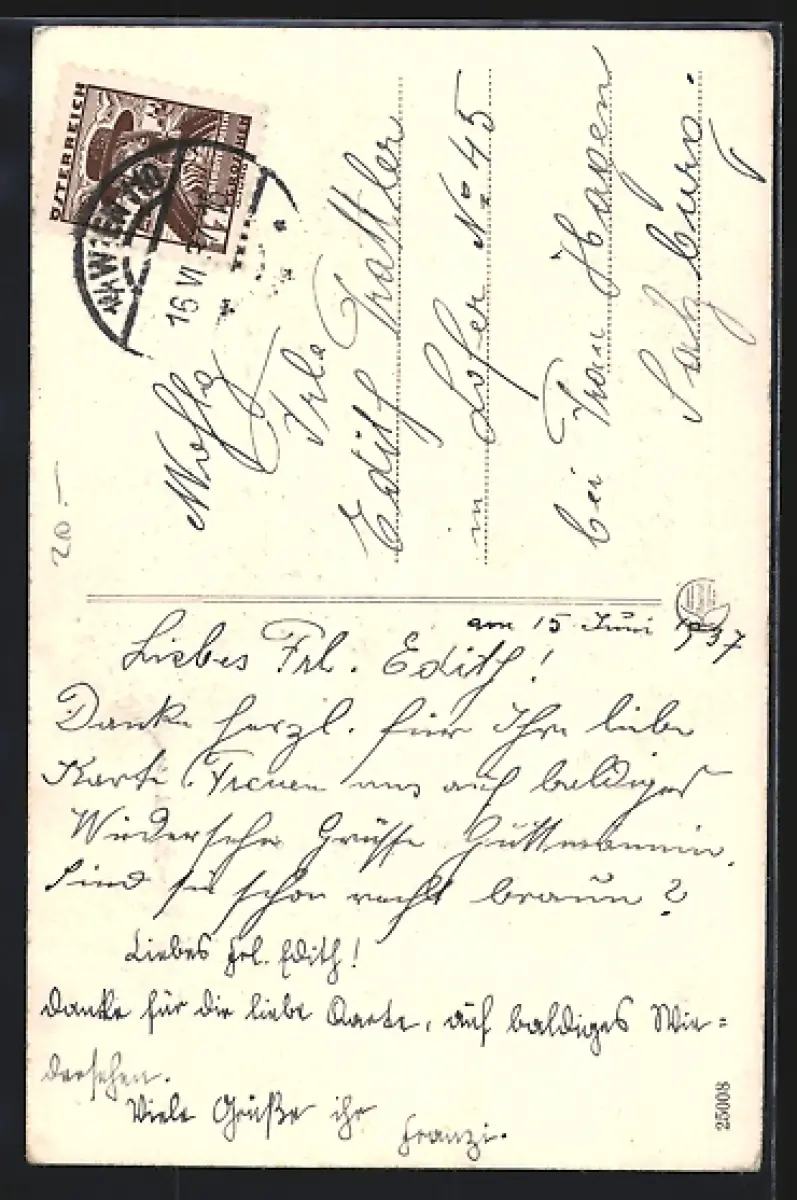 ÖSTERREICH
16 VI 3
Frl.
Edith Prattler
in Lofer No 45
bei Frau Hagen
Salzburg.
20.—
am 15 Juni 1937
Liebes Frl. Edith!
Danke herzl. für Ihre liebe
Karte. Freuen uns auf baldiges
Wiedersehn Grüsse Guttmannin.
Sind sie schon recht braun?
Liebes Frl. Edith!
Danke für die liebe Karte, auf baldiges Wie=
dersehen.
Viele Grüße ihr
Franzi.
25008